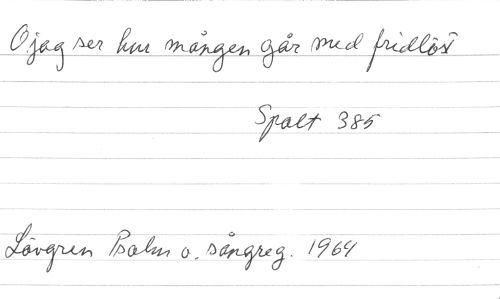 O, jag ser hur mången går med fridlöst
Spalt 385
Lövgren Psalm o. sångreg. 1964